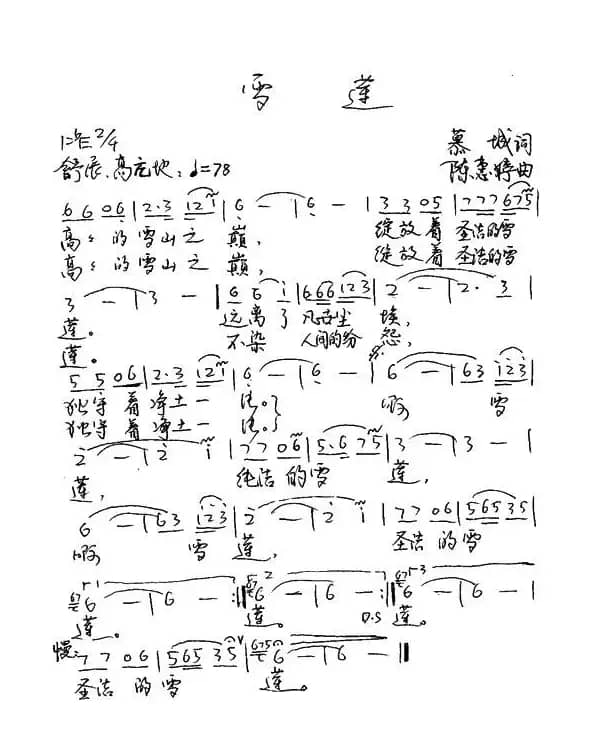 雪 莲
1=♭E 2/4
慕 城词
舒展、高亢地 ♩=78
陈惠婷曲
6 6 0 6 | 2·3 1 2 i | 6 — | 6 — | 3 3 0 5 | 7 7 7 6 7 5 |
高高的雪山之 巅, 绽放着 圣洁的雪
高高的雪山之 巅, 绽放着 圣洁的雪
3 — | 3 — | 6 6 i | 6 6 6 1 2 3 | 2 — | 2· 3 |
莲。 远离了 凡世尘 埃,
莲。 不染 人间的纷 怨,
5 5 0 6 | 2·3 1 2 i | 6 — | 6 — | 6 — | 6 3 i 2 3 |
独守 着净土一 洁。} 啊 雪
独守 着净土一 洁。}
2 — | 2 i | 7 7 0 6 | 5·6 7 5 | 3 — | 3 — |
莲, 纯洁 的雪 莲,
6 — | 6 3 i 2 3 | 2 — | 2 i | 7 7 0 6 | 5 6 5 3 5 |
啊 雪 莲, 圣洁 的雪
1 2 3
6 — | 6 — :|| 6 — | 6 — :|| 6 — | 6 — |
D.S
莲。 莲。 莲。
慢: 7 7 0 6 | 5 6 5 3 5 ∨ | 6 7 5 6 — | 6 — ||
圣洁 的雪 莲。